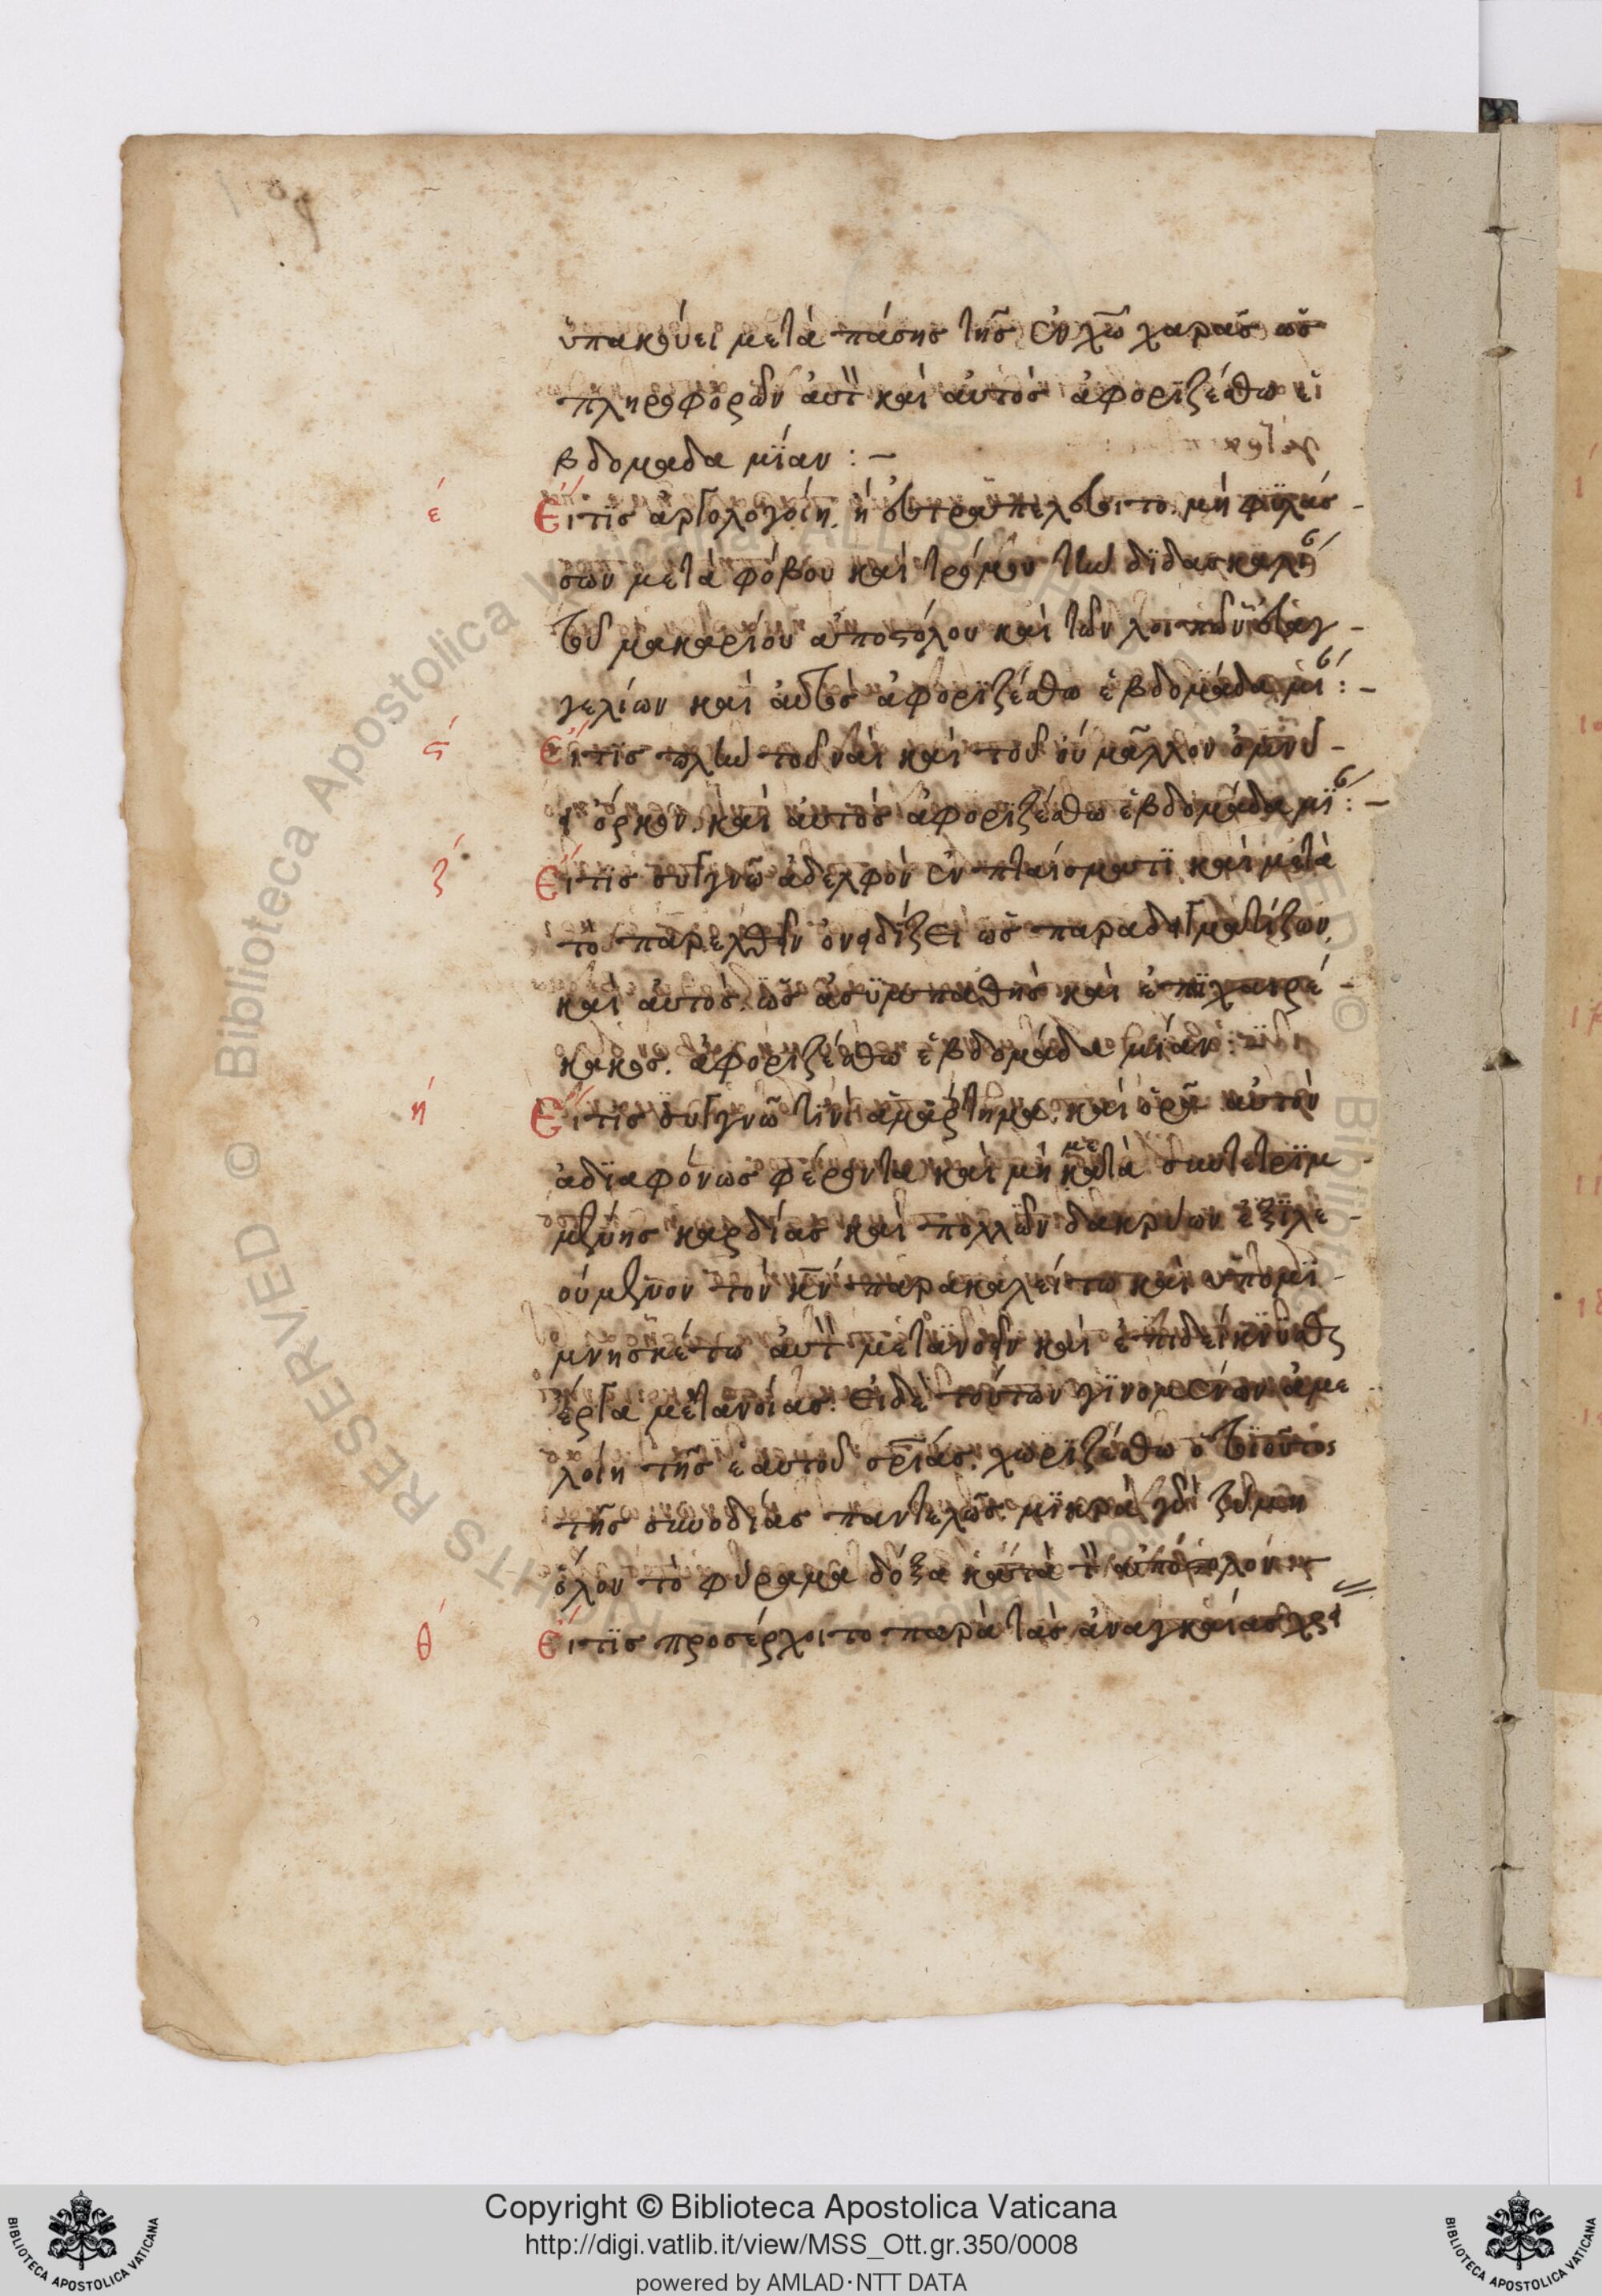 ὑπακούει μετὰ πάσης τῆς ἐν χῶ χαρᾶς ὡς
πληροφορῶν αὐτὸν καὶ αὐτὸς ἀφοριζέσθω ἑ
βδομαδα μΐαν : –
έ Εἴ τϊς ἀργολογοίη. ἢ εὐτραπελεύοιτο. μὴ φυλάσ -
σων μετὰ φόβου καὶ τρόμου τὴν δϊδασκαλί
τοῦ μακαρίου ἀποστόλου καὶ τῶν λοιπῶν εὐαγ -
γελίων καὶ αὐτὸς ἀφορϊζέσθω ἑβδομάδα μί : –
ς´ Εἴ τις πλὴν τοῦ ναὶ καὶ τοῦ οὐ μᾶλλον ὀμνύ -
ει ὅρκον. καὶ αὐτὸς ἀφορϊζέσθω ἑβδομάδα μϊ : –
ζ´ Εἴ τις συγγνῶ ἀδελφὸν ἐν πταίσματϊ καὶ μετὰ
τὸ παρελθεῖν ὀνειδίζει ὡς παραδειγματίζων
καὶ αὐτὸς. ὡς ἀσϋμπαθὴς καὶ ἐπϊχαιρέ -
κακος. ἀφοριζέσθω ἑβδομάδα μίαν : –
ή Εἴ τις συγγνῶ τϊνὶ ἁμάρτημα. καὶ ὁρᾶ αὐτὸν
ἀδϊαφόνως φέροντα καὶ μὴ με κατὰ συντετρϊμ
μένης καρδίας καὶ πολλῶν δακρύων ἐξϊλε -
ούμενον τὸν κν παρακαλείτω καὶ ὑπομϊ -
μνησκέτω αὐτὸν μετανοεῖν καὶ ἐπιδείκνυσθαι
ἔργα μετανοίας. Εἰ δὲ τούτων γϊνομένων ἀμε
λοίη τῆς ἑαυτοῦ σρίας. χωρϊζέσθω ὁ τοιοῦτος
τῆς συνοδίας παντελῶς. μϊκρὰ γὰρ ζύμη
ὅλον τὸ φύραμα δόξα κατὰ τὸν ἀπόστολον
θ´ Εἴ τϊς προσέρχοιτο παρὰ τὰς ἀναγκαίας χρεί
Copyright © Biblioteca Apostolica Vaticana
http://digi.vatlib.it/view/MSS_Ott.gr.350/0008
powered by AMLAD·NTT DATA
BIBLIOTECA APOSTOLICA VATICANA
BIBLIOTECA APOSTOLICA VATICANA